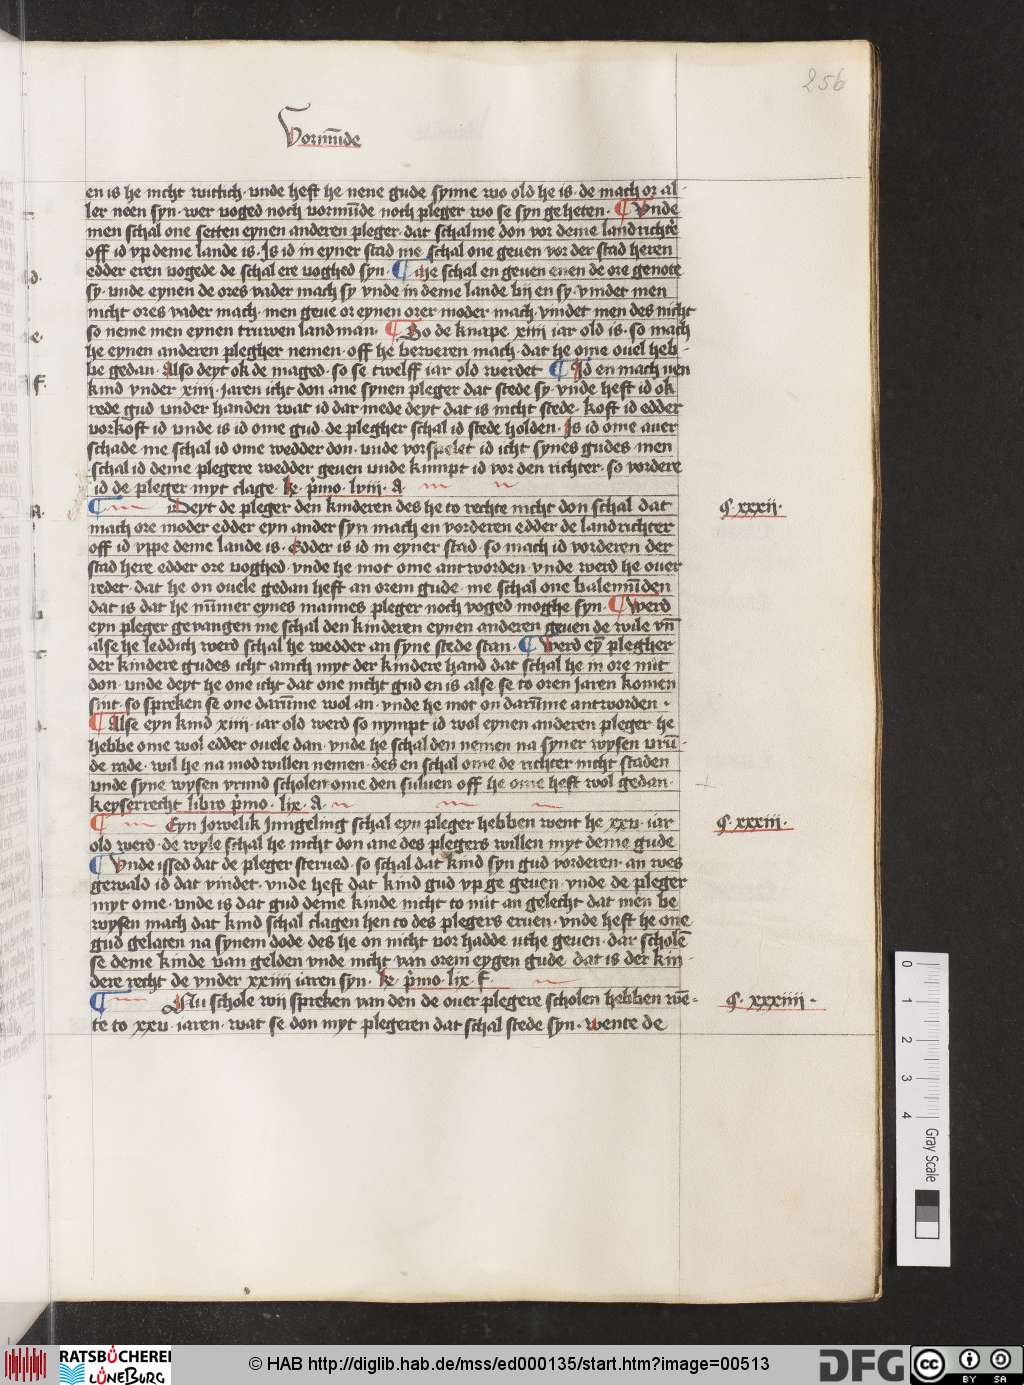 256
Vormu̅de
en is he nicht witlich · vnde heft he nene gude synne wo old he is · de mach or al-
ler neen syn · wer voged noch vormu̅de noch pleger wo se syn geheten · ¶ Vnde
men schal one setten eynen anderen pleger · dat schal me don vor deme landrichte
off id vp deme lande is · Is id in eyner stad me schal one geuen vor der stad heren
edder eren vogede de schal ere voghed syn · ¶ Me schal en geuen enen de ore genote
sy · vnde eynen de ores vader mach sy vnde in deme lande bij en sy · vindet men
nicht ores vader mach · men geue or eynen orer moder mach · vindet men des nicht
so neme men eynen truwen landman · ¶ So de knape xiiij iar old is · so mach
he eynen anderen plegher nemen · off he berveren mach · dat he ome ouel heb-
be gedan · Also deyt ok de maged · so se twelff iar old werdet ¶ Id en mach nen
kind vnder xiiij · jaren icht don ane synen pleger dat stede sy · vnde heft id ok
rede gud vnder handen wat id dar mede deyt dat is nicht stede · koft id edder
vorkoft id vnde is id ome gud · de plegher schal id stede holden · Is id ome auer
schade · me schal id ome wedder don · vnde vorspelet id icht synes gudes · men
schal id deme plegere wedder geuen vnde kumpt id vor den richter · so vordere
id de pleger myt clage · ke · p̅mo · lviij · A
¶ Deyt de pleger den kinderen des he to rechte nicht don schal dat
mach ore moder edder eyn ander syn mach en vorderen edder de landrichter
off id vppe deme lande is · Edder is id in eyner stad · so mach id vorderen der
stad here edder ore voghed · vnde he mot ome antworden · vnde werd he ouer
redet · dat he on ouele gedan heft an orem gude · me schal one balemu̅den
dat is dat he nu̅mer eynes mannes pleger noch voged moghe syn · ¶ Werd
eyn pleger gevangen me schal den kinderen eynen anderen geuen de wile vn̅
alse he leddich werd schal he wedder an syne stede stan · ¶ Werd ey̅ plegher
der kindere gudes icht anich myt der kindere hand dat schal he in ore nut
don · vnde deyt he one icht dat one nicht gud en is alse se to oren jaren komen
sint · so spreken se one daru̅me wol an · vnde he mot on daru̅me antworden ·
¶ Alse eyn kind xiiij · iar old werd so nympt id wol eynen anderen pleger · he
hebbe ome wol edder ouele dan · vnde he schal den nemen na syner wysen vru̅-
de rade · wil he na mod willen nemen · des en schal ome de richter nicht staden
vnde syne wysen vrund scholen ome den suluen off he ome heft wol gedan ·
keyserrecht libro p̅mo · lix · A ·
¶ Eyn jowelik jungeling schal eyn pleger hebben went he xxv · iar
old werd · de wyle schal he nicht don ane des plegers willen myt deme gude
¶ Vnde issed dat de pleger sterued · so schal dat kind syn gud vorderen · an wes
gewald id dat vindet · vnde heft dat kind gud vp ge geuen · vnde de pleger
myt ome · vnde is dat gud deme kinde nicht to nut an gelecht dat men be
wysen mach dat kind schal clagen hen to des plegers eruen · vnde heft he one
gud gelaten na synem dode des he on nicht vor hadde vthe geuen · dar schole̅
se deme kinde van gelden vnde nicht van orem eygen gude dat is der kin-
dere recht de vnder xxiiij iaren syn · ke · p̅mo · lix · F ·
¶ Nu schole wij spreken van den de ouer plegere scholen hebben we̅-
te to xxv · iaren · wat se don myt plegeren dat schal stede syn · wente de
¶ · xxxij ·
¶ · xxxiij ·
¶ · xxxiiij ·
0 1 2 3 4 Gray Scale
RATSBÜCHEREI LÜNEBURG
© HAB http://diglib.hab.de/mss/ed000135/start.htm?image=00513
DFG
cc BY SA